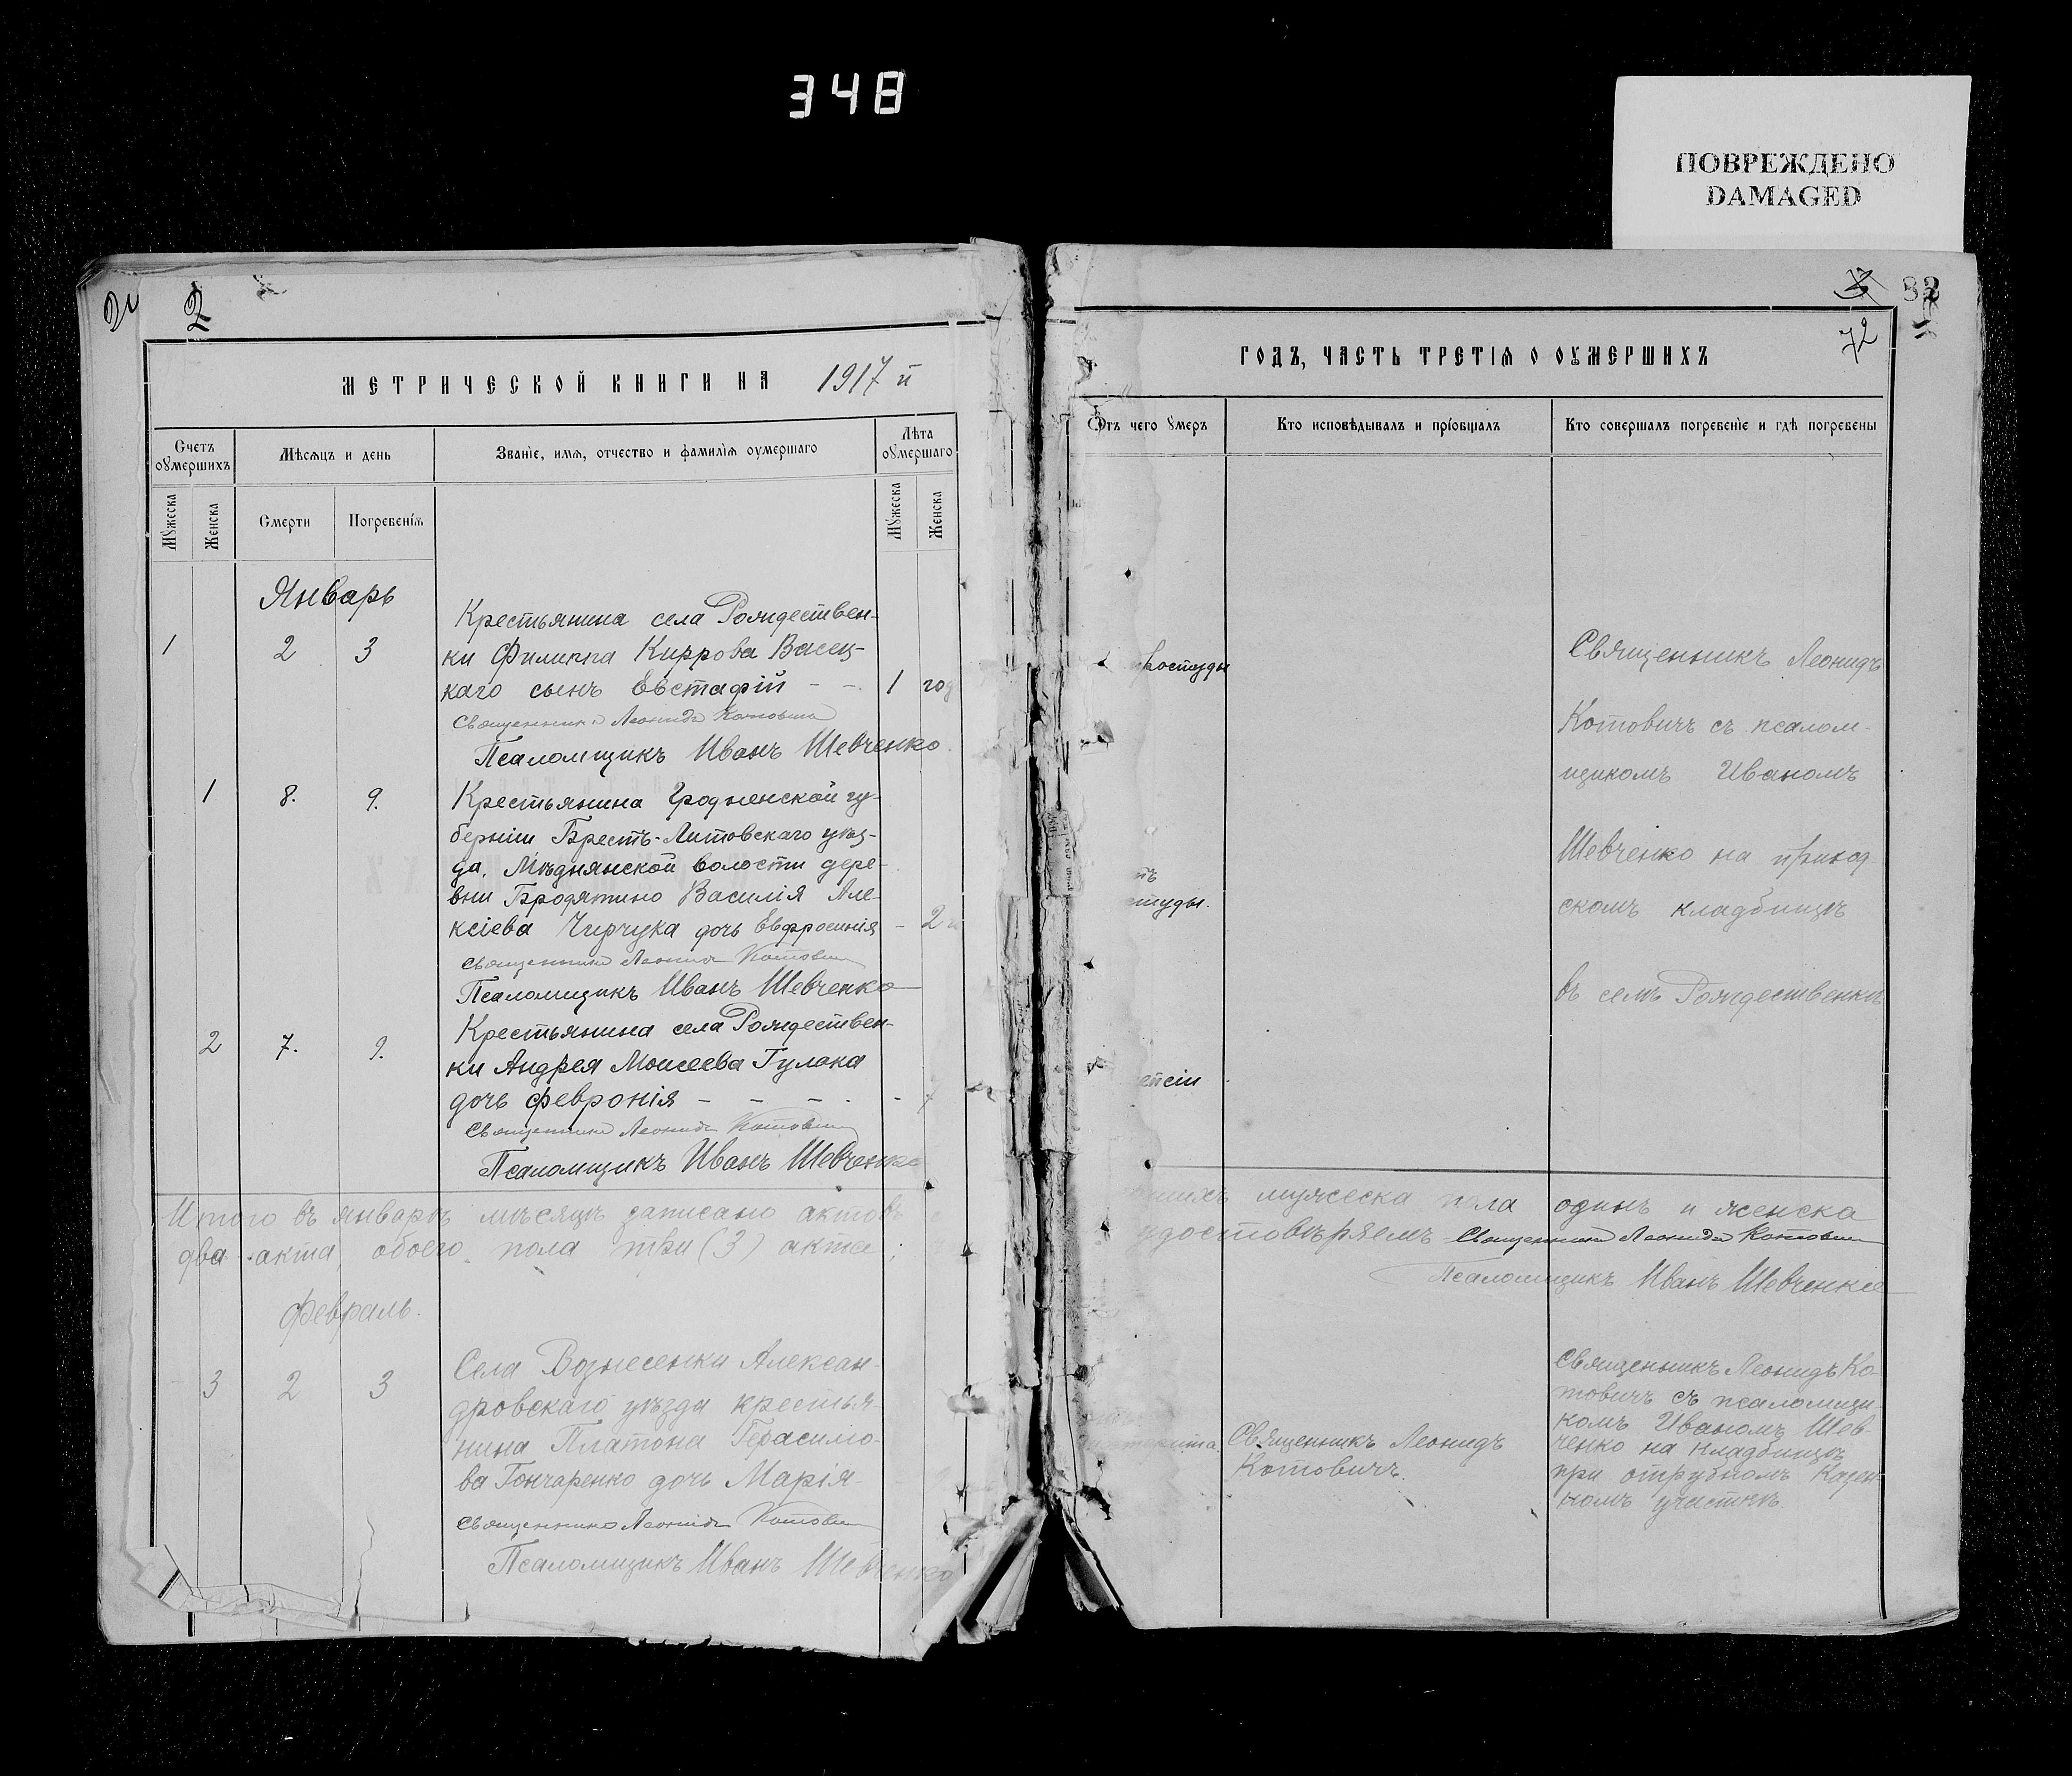 348
ПОВРЕЖДЕНО
DAMAGED
2
МЕТРИЧЕСКОЙ КНИГИ НА 1917 й
Счетъ оумершихъ
Мѣсяцъ и день
Званіе, имя, отчество и фамилія оумершаго
Лѣта оумершаго
Мужеска
Женска
Смерти
Погребенія
Мужеска
Женска
Январь
1 2 3
Крестьянина села Рождествен-
ки Филиппа Киррова Васец-
каго сынъ Евстафій - - 1 год
Священникъ Леонидъ Котовичъ
Псаломщикъ Иванъ Шевченко
1 8. 9.
Крестьянина Гродненской гу-
берніи Брестъ-Литовскаго уѣз-
да, Мѣднянской волости дере-
вни Бродятино Василія Але-
ксіева Чирчука дочь Евфросинія - 2
Священникъ Леонидъ Котовичъ
Псаломщикъ Иванъ Шевченко
2 7. 9.
Крестьянина села Рождествен-
ки Андрея Моисеева Гулака
дочь Февронія - - - - - 7
Священникъ Леонидъ Котовичъ
Псаломщикъ Иванъ Шевченко
Итого въ январѣ мѣсяцѣ записано актовъ
два акта, обоего пола три (3) акта;
Февраль.
3 2 3
Села Вознесенки Алексан-
дровскаго уѣзда крестья-
нина Платона Герасимо-
ва Гончаренко дочь Марія
Священникъ Леонидъ Котовичъ
Псаломщикъ Иванъ Шевченко
72
ГОДЪ, ЧАСТЬ ТРЕТІЯ О ОУМЕРШИХЪ
Отъ чего умеръ
Кто исповѣдывалъ и пріобщалъ
Кто совершалъ погребеніе и гдѣ погребены
простуды
Священникъ Леонидъ
Котовичъ съ псалом-
щикомъ Иваномъ
Шевченко на приход-
скомъ кладбищѣ
въ селѣ Рождественкѣ
тъ
студы.
епсіи
шихъ мужеска пола одинъ и женска
удостовѣряемъ Священникъ Леонидъ Котовичъ
Псаломщикъ Иванъ Шевченко
Священникъ Леонидъ
Котовичъ.
Священникъ Леонидъ Ко-
товичъ съ псаломщи-
комъ Иваномъ Шев-
ченко на кладбищѣ
при отрубномъ Казен-
номъ участкѣ.